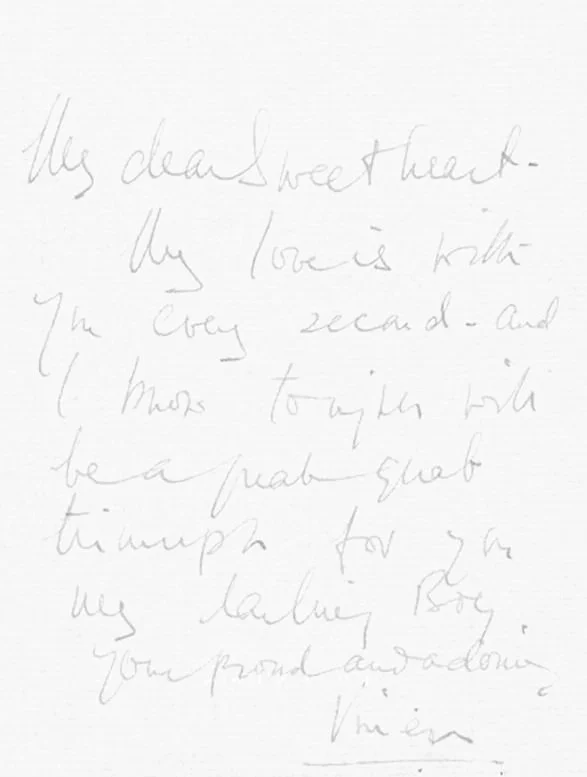 My dear Sweetheart -
My love is with
you every second - and
I know tonight will
be a great great
triumph for you
my darling Boy.
Your proud and adoring
Vivien